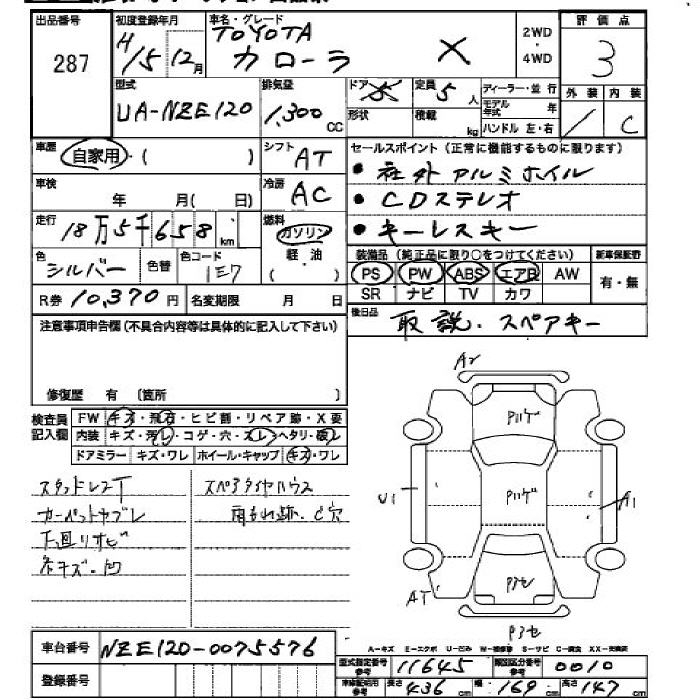 出品番号 初度登録年月 車名・グレード 2WD・4WD 評価点
287 H/5 12月 TOYOTA カローラ X 3
型式 排気量 ドア 5 定員 5人 ディーラー・並行 外装 内装
UA-NZE120 1,300cc 形状 積載 kg モデル年式 年 ハンドル 左・右 C
車歴 自家用・( ) シフト AT セールスポイント(正常に機能するものに限ります)
・社外アルミホイル
車検 年 月( 日) 冷房 AC ・CDステレオ
走行 18万5千658km 燃料 ガソリン ・キーレスキー
軽・油 ( ) 装備品(純正品に限り○をつけてください) 新車保証書
色 シルバー 色替 色コード 1E7 PS PW ABS エアB AW 有・無
R券 10,370円 名変期限 月 日 SR ナビ TV カワ
注意事項申告欄(不具合内容等は具体的に記入して下さい) 後日品 取説・スペアキー
修復歴 有 〔箇所 〕
検査員記入欄 FW キズ・飛石・ヒビ割・リペア跡・X要
内装 キズ・汚レ・コゲ・穴・スレ・ヘタリ・破レ
ドアミラー キズ・ワレ ホイール・キャップ キズ・ワレ
スタッドレスT スペアタイヤハウス
カーペットヤブレ 雨もれ跡・ビ穴
下回リサビ
小キズ・凹
A2
Pハゲ
U1 Pハゲ A1
AT P3セ
P3セ
車台番号 NZE120-0075576
A-キズ E-エクボ U-凹み W-補修跡 S-サビ C-腐食 XX-交換済
登録番号 型式指定番号参考 11645 類別区分番号参考 0010
車検証明用参考 長さ 436cm 幅 169cm 高さ 147cm